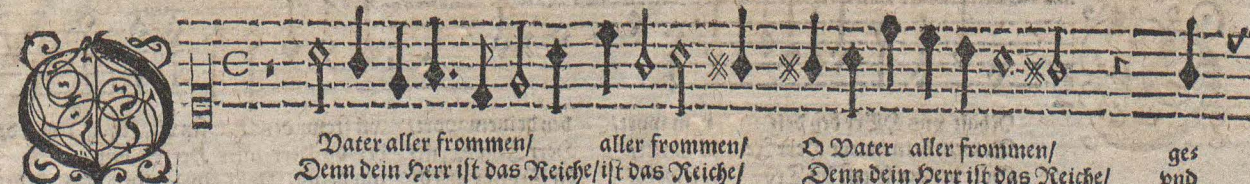 O
Vater aller frommen/ aller frommen/ O Vater aller frommen/ ge⸗
Denn dein Herr iſt das Reiche/ iſt das Reiche/ Denn dein Herr iſt das Reiche/ vnd